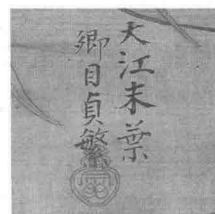 大江末葉
郷目貞繁